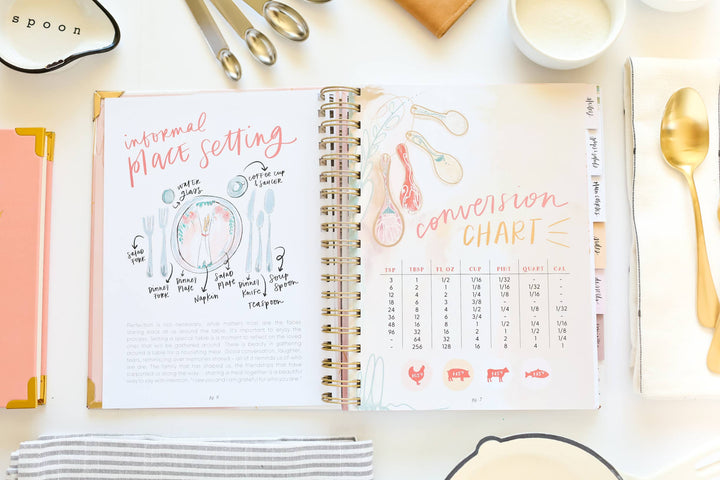 spoon
informal
place setting
WATER
GLASS
COFFEE CUP
& SAUCER
SALAD
FORK
DINNER
FORK
DINNER
PLATE
NAPKIN
SALAD
PLATE
DINNER
KNIFE
TEASPOON
SOUP
SPOON
Perfection is not necessary, what matters most are the faces
back at us around the table. It's important to enjoy the
process. Setting a special table is a moment to reflect on the loved
ones that will be gathered around. There is beauty in gathering
around a table for a nourishing meal. Good conversation, laughter,
tears, reminiscing over memories shared - all of it reminds us of who
we are. The family that has shaped us, the friendships that have
supported us along the way. a meal together is a beautiful
way to say with intention, "I see you and I am grateful for who you are."
conversion
CHART
TSP TBSP FL OZ CUP PINT QUART GAL
3 1 1/2 1/16 1/32 - -
6 2 1 1/8 1/16 1/32 -
12 4 2 1/4 1/8 1/16 -
18 6 3 3/8 - - -
24 8 4 1/2 1/4 1/8 1/32
36 12 6 3/4 - - -
48 16 8 1 1/2 1/4 1/16
96 32 16 2 1 1/2 1/8
- 64 32 4 2 1 1/4
- 256 128 16 8 4 1
165° 145° 145° 145°